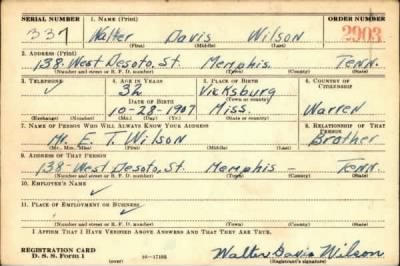 SERIAL NUMBER 1. NAME (Print) ORDER NUMBER
337 Walter Davis Wilson 2903
(First) (Middle) (Last)
2. ADDRESS (Print)
138 West Desoto, St. Memphis, Tenn.
(Number and street or R. F. D. number) (Town) (County) (State)
3. TELEPHONE 4. AGE IN YEARS 5. PLACE OF BIRTH 6. COUNTRY OF CITIZENSHIP
✓ 32 Vicksburg
DATE OF BIRTH (Town or county)
10-28-1907 Miss. Warren
(Exchange) (Number) (Mo.) (Day) (Yr.) (State or country)
7. NAME OF PERSON WHO WILL ALWAYS KNOW YOUR ADDRESS 8. RELATIONSHIP OF THAT PERSON
E. T. Wilson Brother
(Mr., Mrs., Miss) (First) (Middle) (Last)
9. ADDRESS OF THAT PERSON
138-West Desoto, St. Memphis - Tenn.
(Number and street or R. F. D. number) (Town) (County) (State)
10. EMPLOYER'S NAME
✓
11. PLACE OF EMPLOYMENT OR BUSINESS
✓
(Number and street or R. F. D. number) (Town) (County) (State)
I AFFIRM THAT I HAVE VERIFIED ABOVE ANSWERS AND THAT THEY ARE TRUE.
REGISTRATION CARD
D. S. S. Form 1 (over) 16-17105 Walter Davis Wilson
(Registrant's signature)